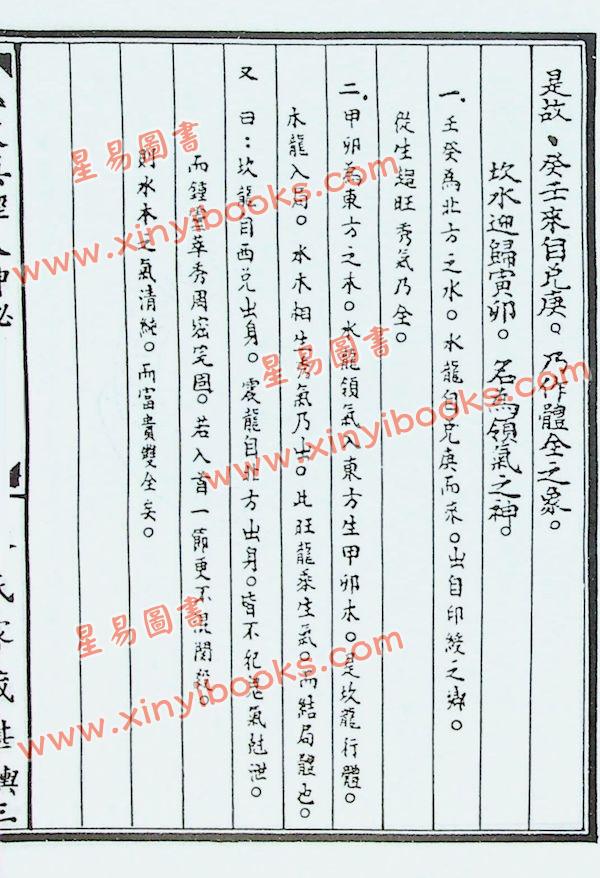 是故、癸壬來自兌庚。乃作體全之象。
坎水迎歸寅卯。名為領氣之神。
一.壬癸為北方之水。水龍自兌庚而來。出自印綬之鄉。
從生趨旺秀氣乃全。
二.甲卯為東方之木。水龍領氣入東方生甲卯木。是坎龍行體。
木龍入局。水木相生秀氣乃出。比旺龍乘生氣。而結局體也。
又曰：坎龍自西兌出身。震龍自北方出身。皆不犯 氣尅泄。
而鐘靈萃秀周密完固。若入首一節更不混閃殺。
則水木之氣清純。而富貴雙全矣。
氏家藏堪輿三
星易圖書
www.xinyibooks.com
星易圖書
www.xinyibooks.com
星易圖書
www.xinyibooks.com